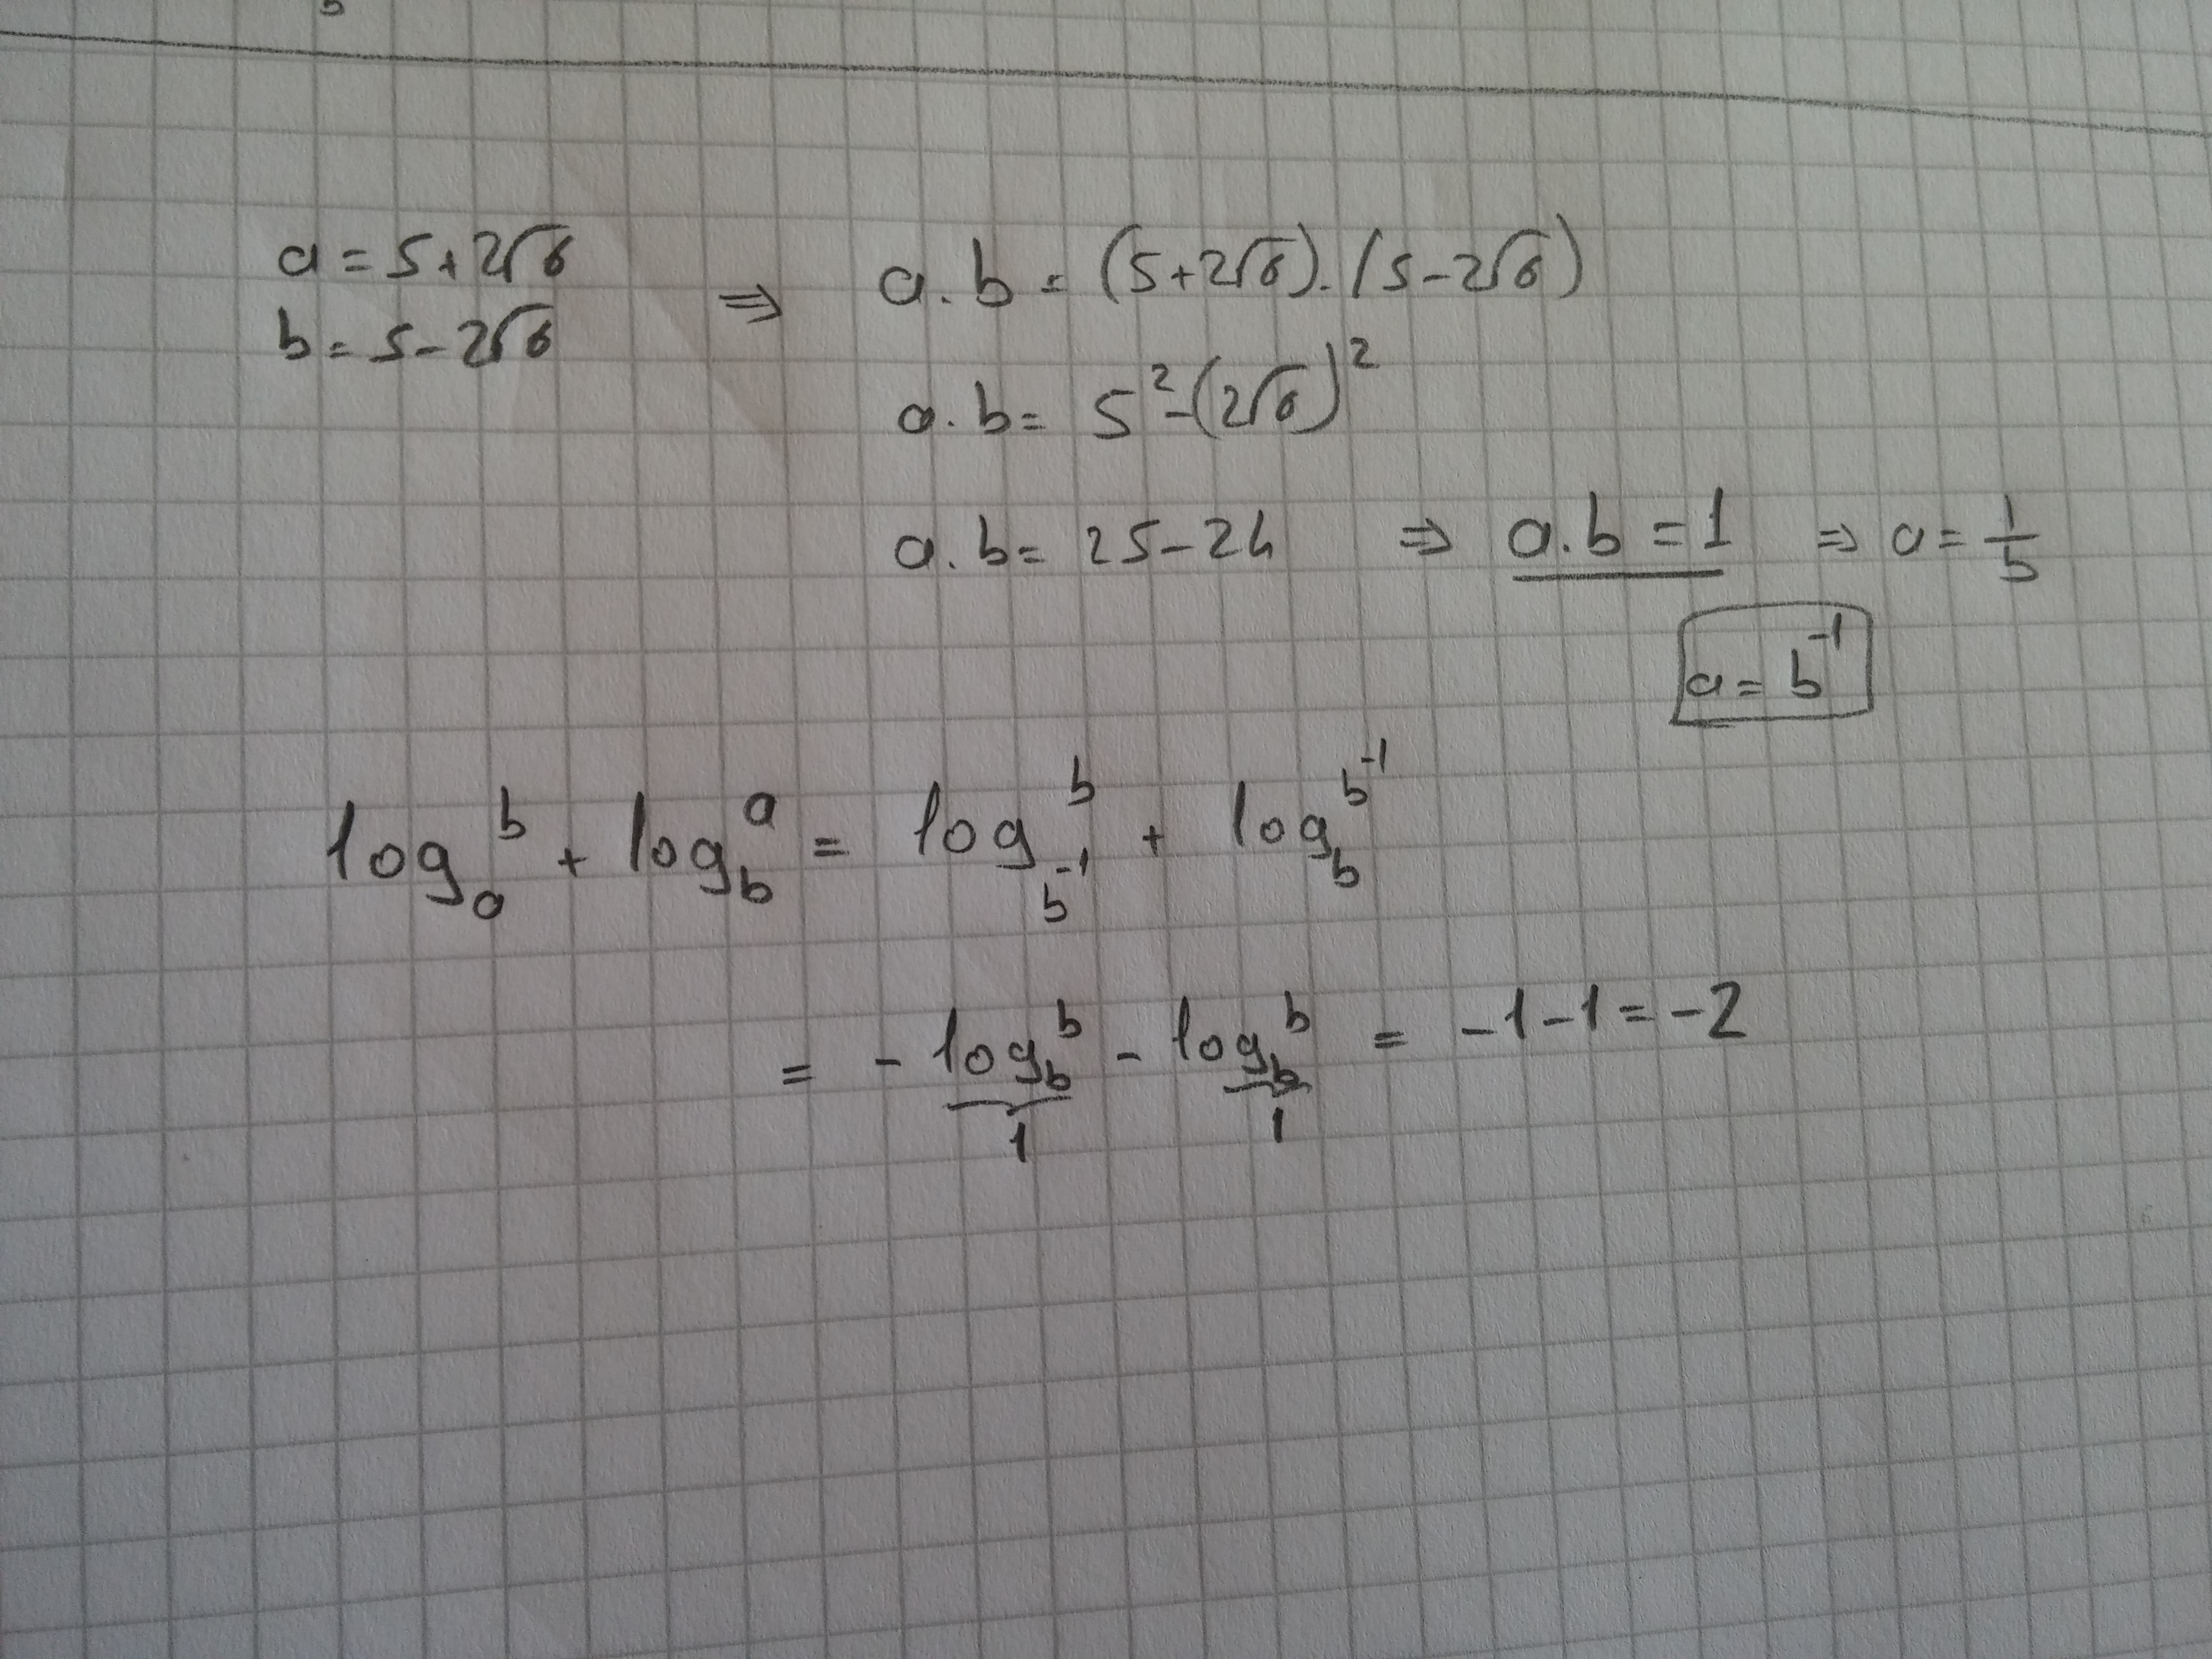 a = 5+2√6
b = 5-2√6
⇒ a.b = (5+2√6).(5-2√6)
a.b = 5²-(2√6)²
a.b = 25-24 ⇒ a.b = 1 ⇒ a = 1/b
a = b⁻¹
logₐ b + log_b a = log_b⁻¹ b + log_b b⁻¹
= - log_b b - log_b b = -1-1 = -2
1 1